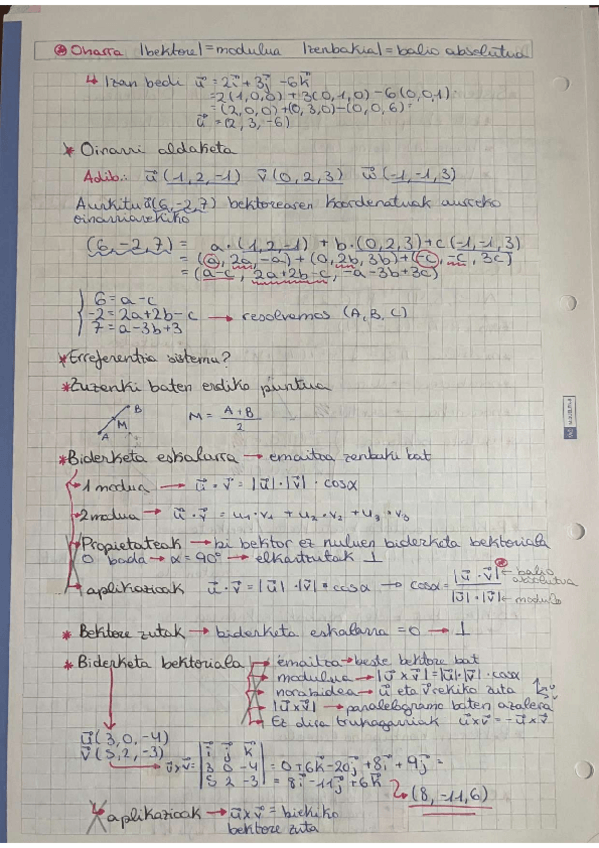 Oharra |bektore| = modulua |zenbakia| = balio absolutua
↳ Izan bedi u⃗ = 2i⃗ + 3j⃗ - 6k⃗
= 2(1,0,0) + 3(0,1,0) - 6(0,0,1)
= (2,0,0) + (0,3,0) - (0,0,6) =
u⃗ = (2, 3, -6)
* Oinarri aldaketa
Adib.: u⃗ (1,2,-1) v⃗ (0,2,3) w⃗ (-1,-1,3)
Aurkitu (6,-2,7) bektorearen koordenatuak aurreko
oinarriarekiko
(6,-2,7) = a·(1,2,-1) + b·(0,2,3) + c(-1,-1,3)
= (a, 2a, -a) + (0, 2b, 3b) + (-c, -c, 3c)
= (a-c, 2a+2b-c, -a-3b+3c)
6 = a-c
-2 = 2a+2b-c → resolvemos (A, B, C)
7 = a-3b+3
* Erreferentzia sistema?
* Zuzenki baten erdiko puntua
A M B M = A+B / 2
* Biderketa eskalarra → emaitza zenbaki bat
1 modua → u⃗ · v⃗ = |u⃗| · |v⃗| · cosα
2 modua → u⃗ · v⃗ = u₁·v₁ + u₂·v₂ + u₃·v₃
Propietateak → bi bektor ez nuluen biderketa bektoriala
0 bada → α = 90° → elkartzutak ⊥
aplikazioak u⃗ · v⃗ = |u⃗| · |v⃗| · cosα → cosα = |u⃗ · v⃗| / |u⃗| · |v⃗| ← balio absolutua ← modulo
* Bektore zutak → biderketa eskalarra = 0 → ⊥
* Biderketa bektoriala → emaitza → beste bektore bat
→ modulua → |u⃗ x v⃗| = |u⃗| · |v⃗| · cosα
→ norabidea → u⃗ eta v⃗ rekiko zuta
→ |u⃗ x v⃗| → paralelogramo baten azalera
→ Ez dira trukagarriak u⃗ x v⃗ = - u⃗ x v⃗
u⃗ (3, 0, -4)
v⃗ (5, 2, -3)
→ u⃗ x v⃗ = | i⃗ j⃗ k⃗ | = 0 + 6k⃗ - 20j⃗ + 8i⃗ + 9j⃗ =
| 3 0 -4 | = 8i⃗ - 11j⃗ + 6k⃗
| 5 2 -3 | → (8, -11, 6)
aplikazioak → u⃗ x v⃗ = biekiko
bektore zuta